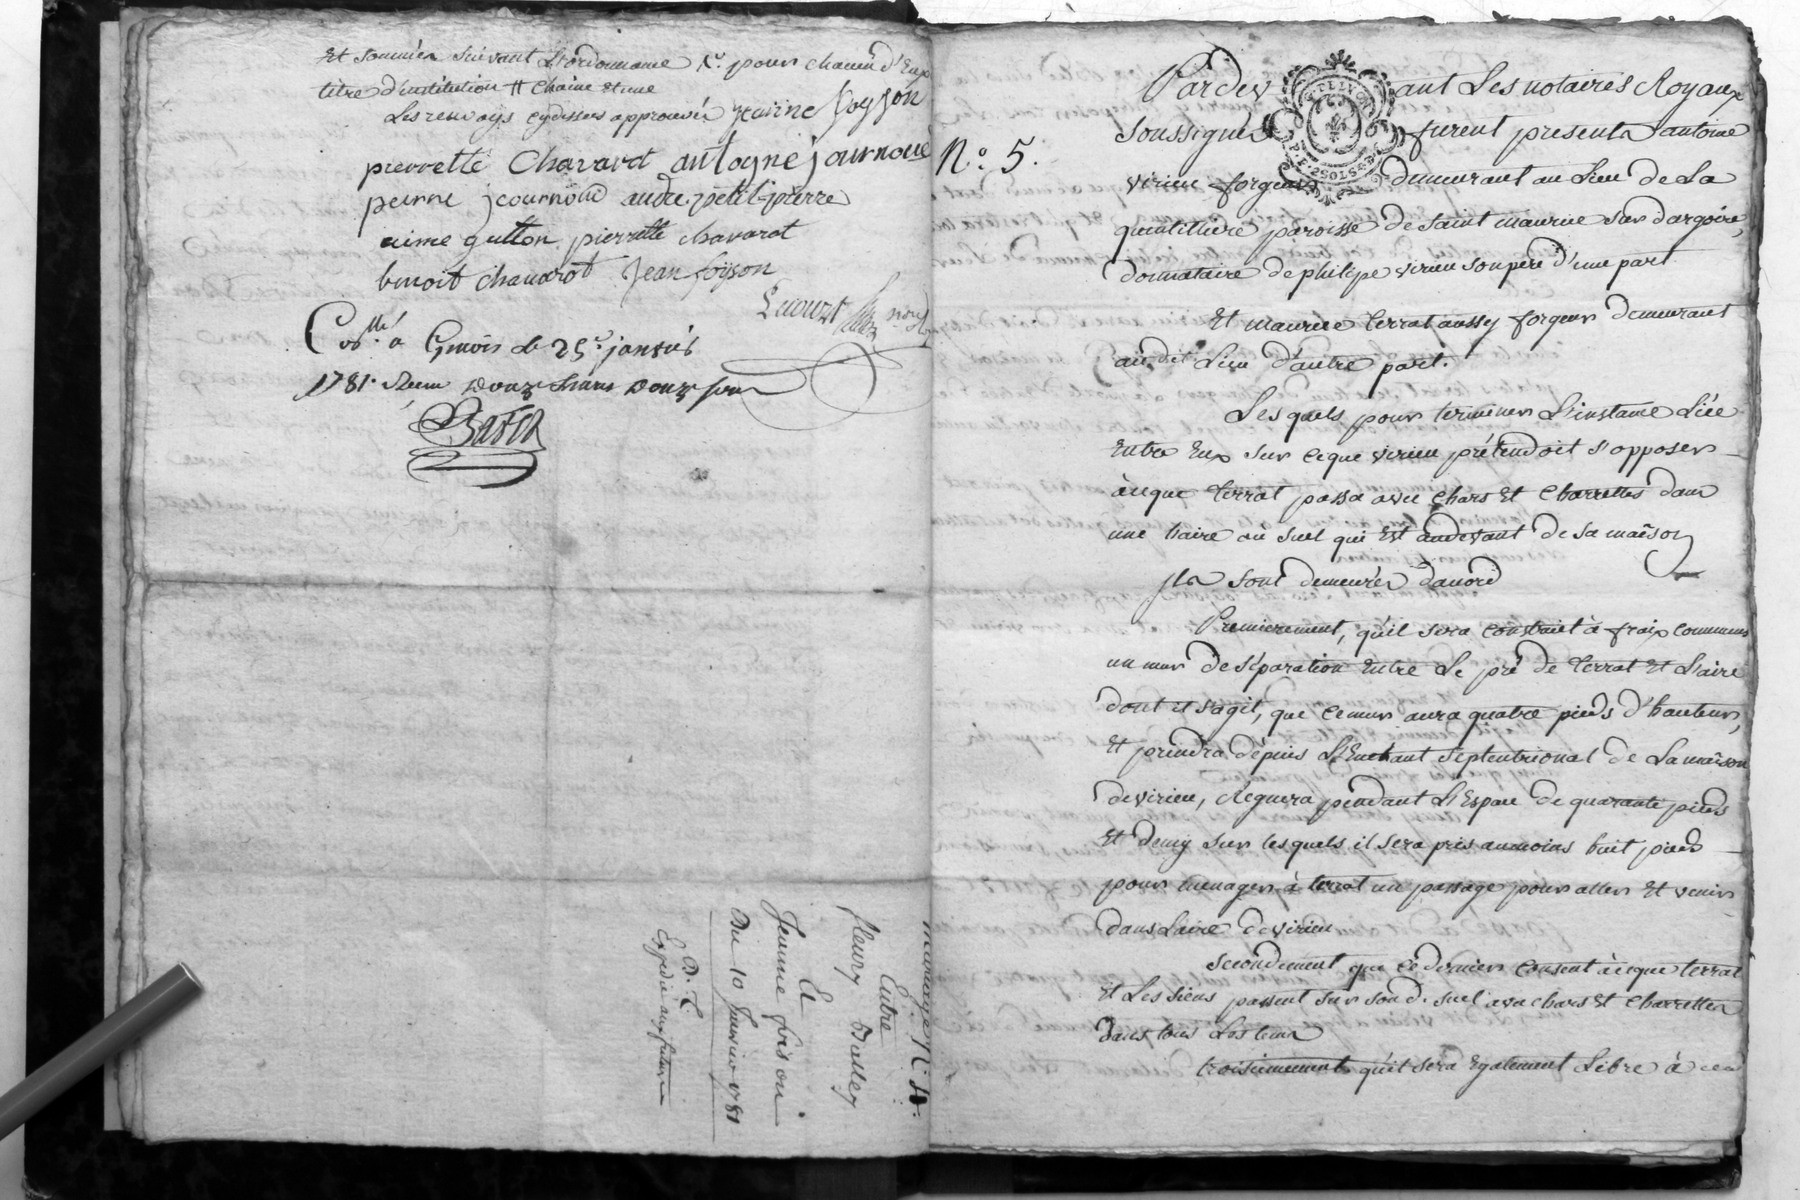 Et sommées suivant L'ordonnance pour chacun d'Eux
titre d'institution # chaine Et une
Les renvoys cy dessus approuvés jeanne foyson
pierrette Chavarot antoyne journoud
pierre journoud andré petit-pierre
aimé gutton pierrette chavarot
benoit chavarot Jean foyson
Lecourt nore
Collé à Gmois le 25e janvier
1781. Recu Douze
Mariage N. 4.
Entre
fleury Balley
Et
Jeanne foison
Du 10 Janvier 1781
Expédié au futur
N.o 5.
Pardevant Les notaires Royaux
soussignés furent presents antoine
virieu forgeur demeurant au Lieu de La
quintilliere paroisse de saint maurice sur dargoire,
donnataire de philipe virieu son pere d'une part
Et maurice terrat aussy forgeur demeurant
audit Lieu d'autre part.
Les quels pour terminer L'instance Liée
Entre Eux sur ce que virieu prétendoit s'opposer
à ce que terrat passa avec chars Et charrettes dans
une haire ou suel qui Est audevant de sa maison
jls sont demeurés d'accord
Premierement, qu'il sera construit à fraix communs
un mur de séparation Entre Le pré de terrat Et L'aire
dont il s'agit, que ce mur aura quatre pieds d'hauteur,
Et prendra dépuis L'Enchant septentrional de La maison
de virieu, Regnera pendant L'Espace de quarante pieds
Et demy sur lesquels il sera pris au moins huit pieds
pour menager à terrat un passage pour aller Et venir
dans L'aire de virieu
secondement que ce dernier consent à ce que terrat
Et Les siens passent sur son d. suel avec chars Et charrettes
dans tous Les tems
troisiemement qu'il sera Egalement Libre à ces